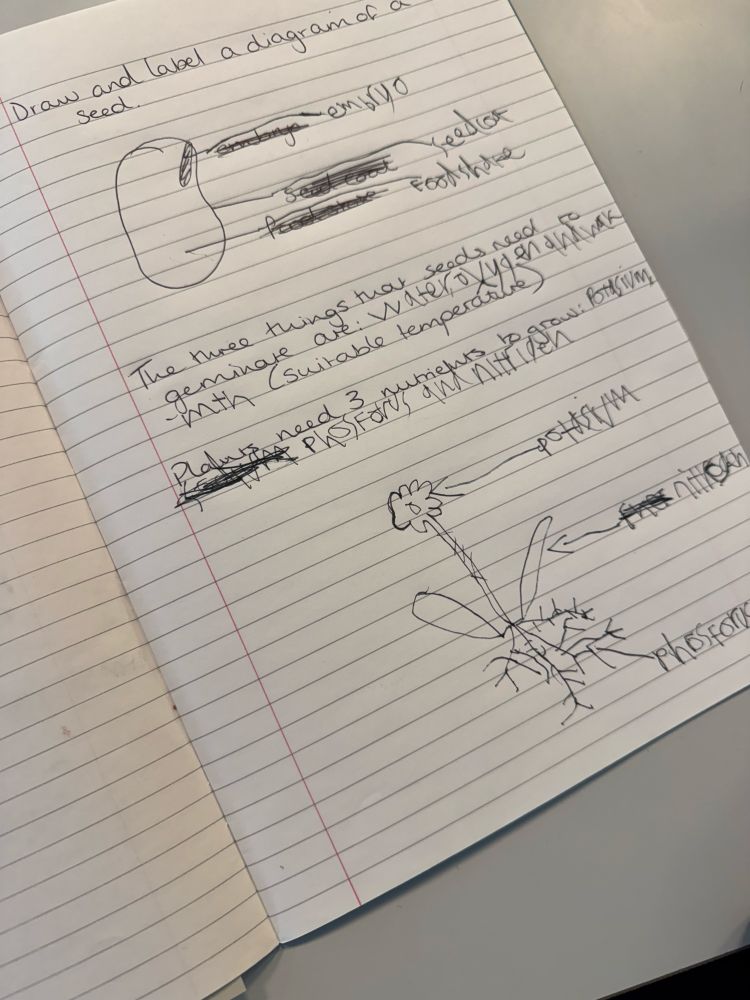 Draw and label a diagram of a
seed.
embryo
seed coat
food store
The three things that seeds need to
geminate are: water, oxygen and wak
-mth (suitable temperature)
Plants need 3 nutrients to grow: Potasium,
phosforus and nitrigen
potasium
nitrogen
phosforus